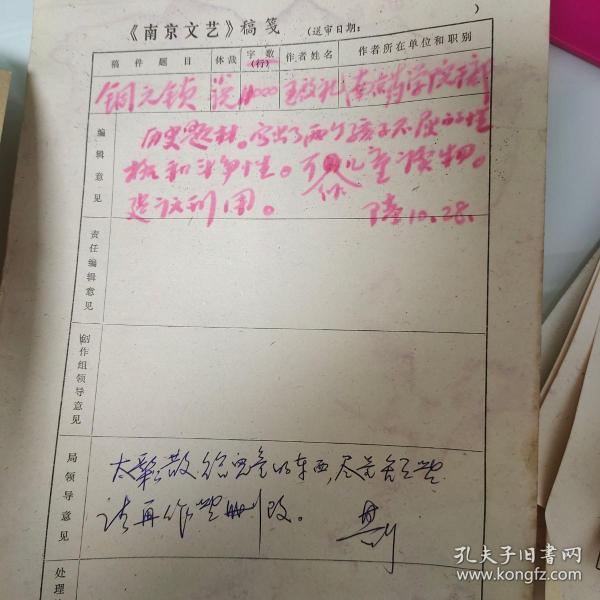 《南京文艺》稿笺 (送审日期: )
稿件题目 体裁 字数(行) 作者姓名 作者所在单位和职别
铜元锁 小说 11000 南京药学院
编辑意见
历史题材。写出了两个孩子不屈的性
格和斗争性。可作儿童读物。
建议刊用。 10.28.
责任编辑意见
创作组领导意见
局领导意见
太松散,给儿童的东西,尽量
请再作些删改。
处理
孔夫子旧书网
www.kongfz.com